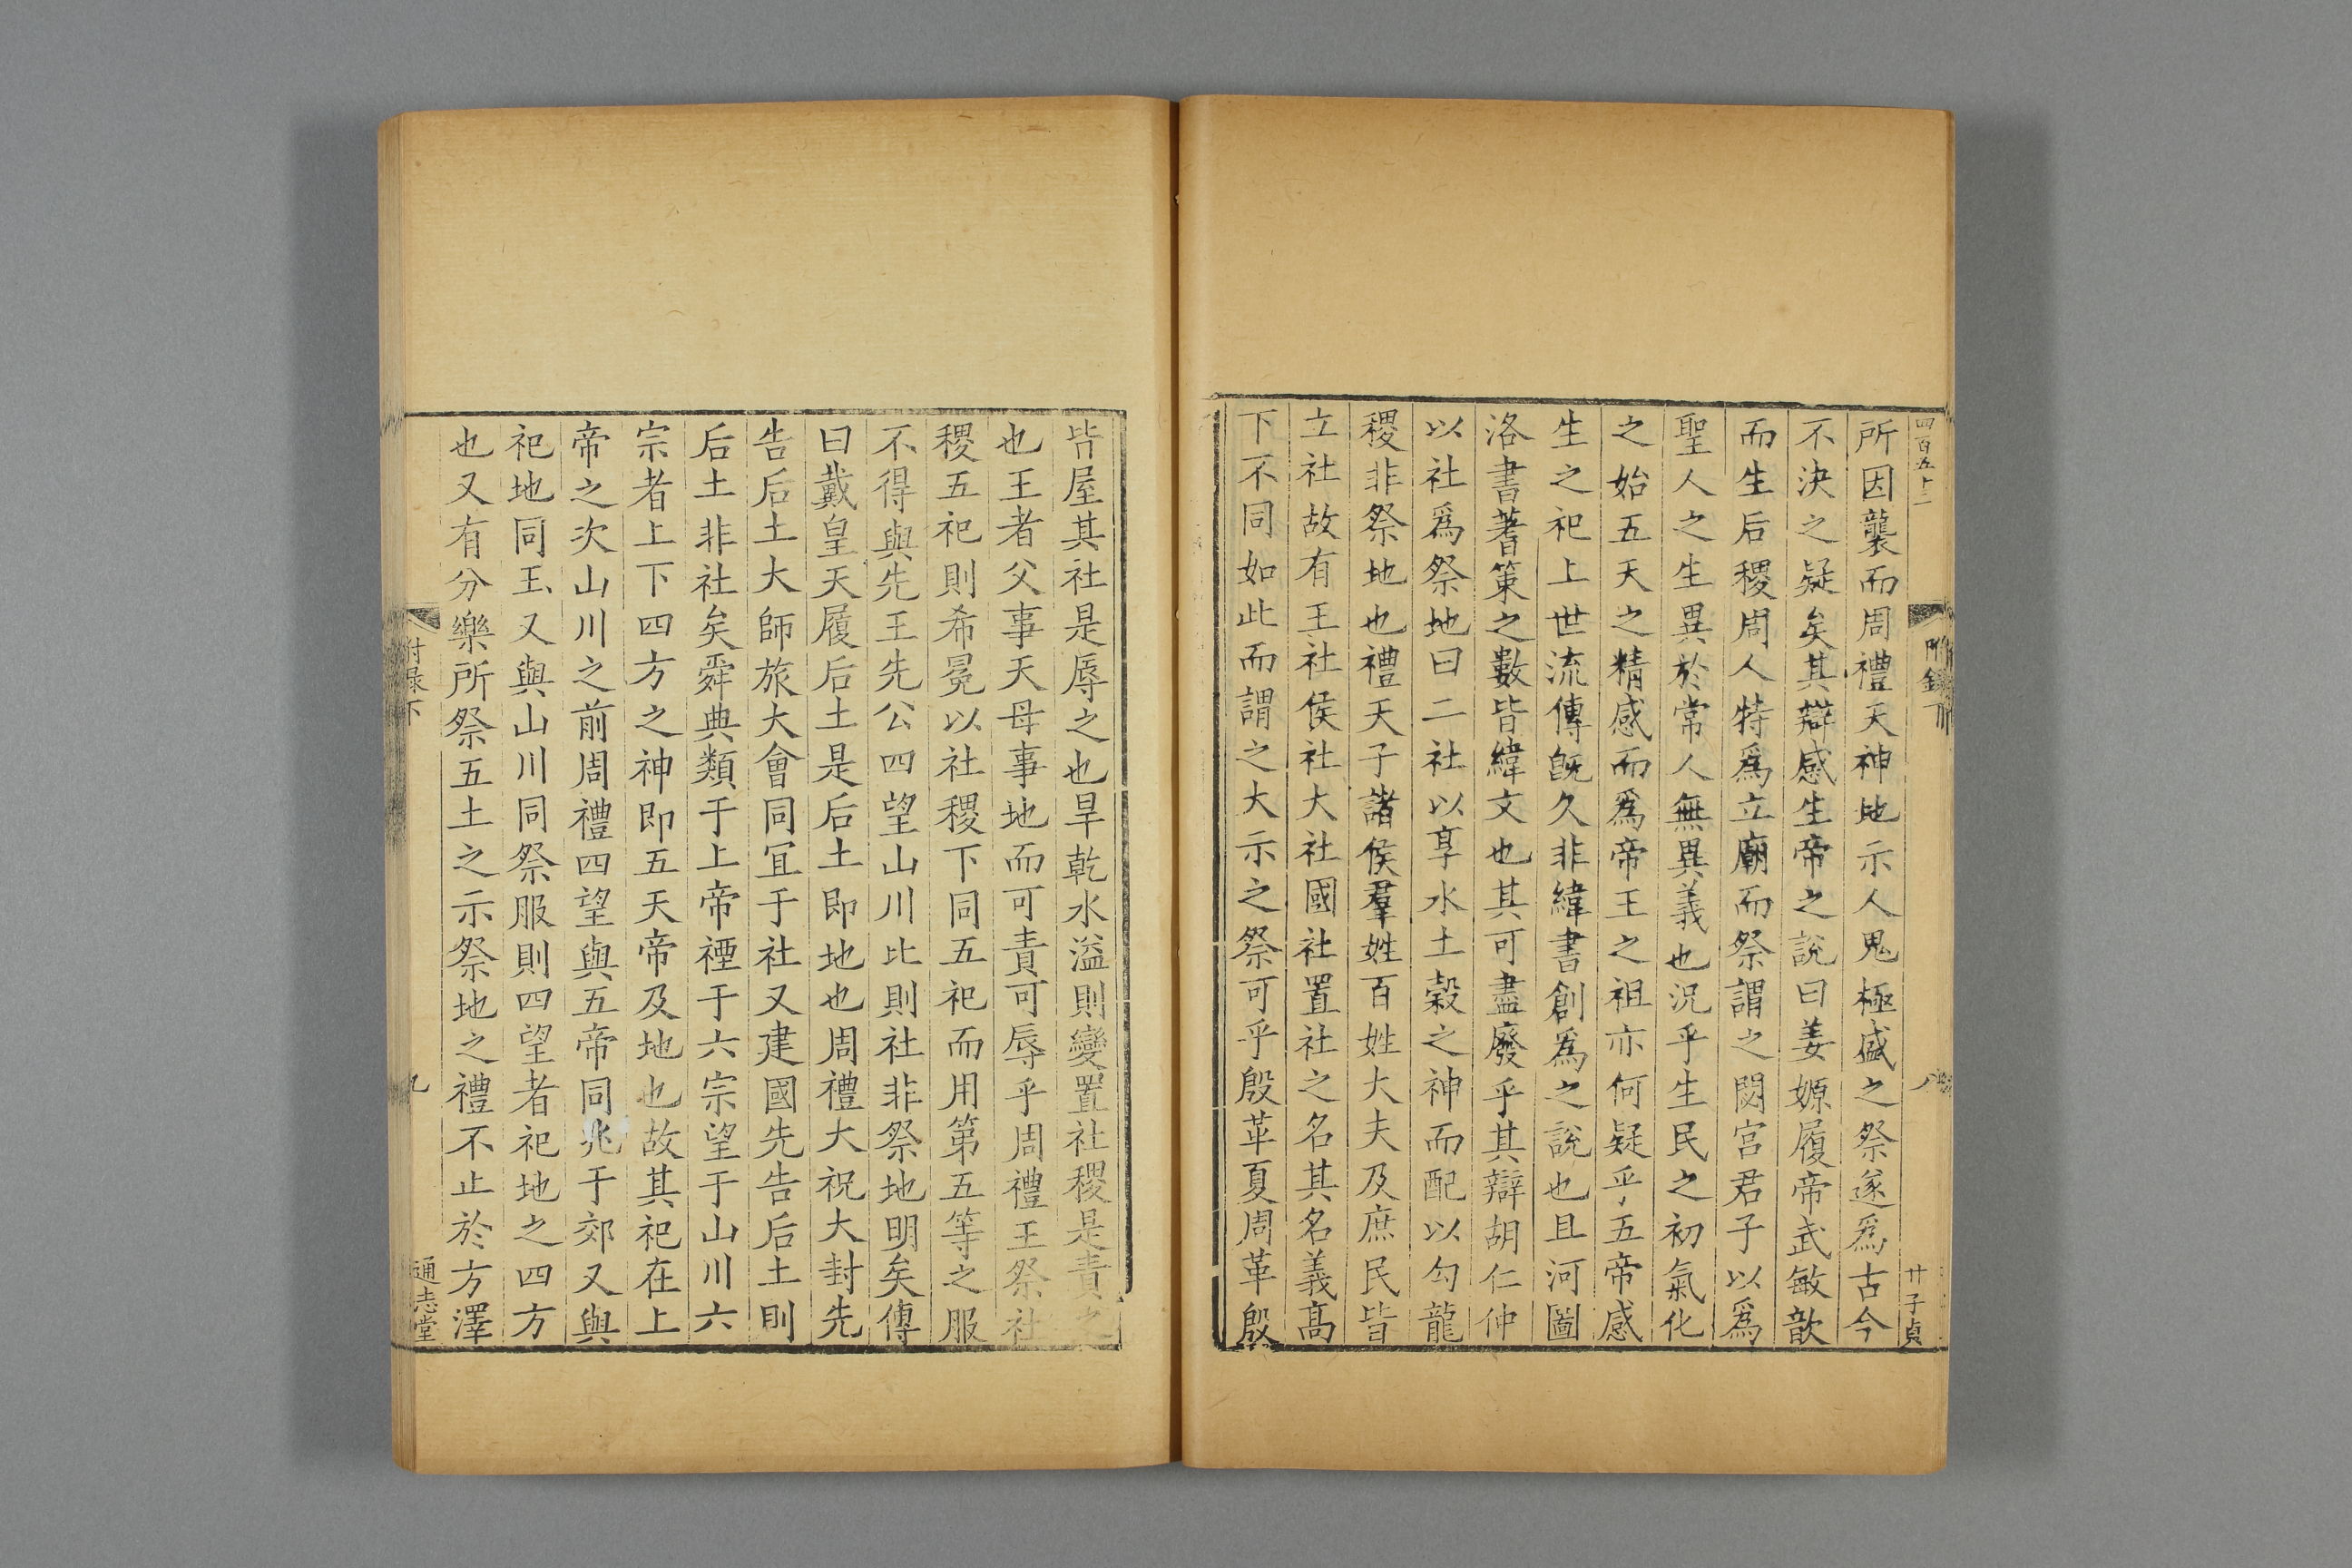 四百五十二
附錄下
八
甘子貞
所因襲而周禮天神地示人鬼極盛之祭遂爲古今
不決之疑矣其辯感生帝之說曰姜嫄履帝武敏歆
而生后稷周人特爲立廟而祭謂之閟宫君子以爲
聖人之生異於常人無異義也況乎生民之初氣化
之始五天之精感而爲帝王之祖亦何疑乎五帝感
生之祀上世流傳旣久非緯書創爲之說也且河圖
洛書蓍策之數皆緯文也其可盡廢乎其辯胡仁仲
以社爲祭地曰二社以享水土穀之神而配以勾龍
稷非祭地也禮天子諸侯羣姓百姓大夫及庶民皆
立社故有王社侯社大社國社置社之名其名義高
下不同如此而謂之大示之祭可乎殷革夏周革殷
皆屋其社是辱之也旱乾水溢則變置社稷是責之
也王者父事天母事地而可責可辱乎周禮王祭社
稷五祀則希冕以社稷下同五祀而用第五等之服
不得與先王先公四望山川比則社非祭地明矣傳
曰戴皇天履后土是后土即地也周禮大祝大封先
告后土大師旅大會同宜于社又建國先告后土則
后土非社矣舜典類于上帝禋于六宗望于山川六
宗者上下四方之神即五天帝及地也故其祀在上
帝之次山川之前周禮四望與五帝同兆于郊又與
祀地同玉又與山川同祭服則四望者祀地之四方
也又有分樂所祭五土之示祭地之禮不止於方澤
附錄下
九
通志堂